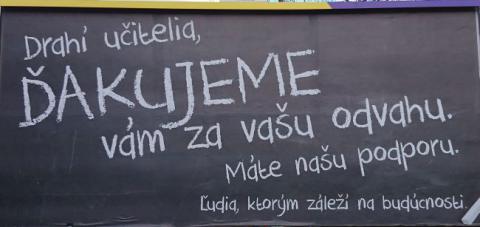 Drahí učitelia,
ĎAKUJEME
vám za vašu odvahu.
Máte našu podporu.
Ľudia, ktorým záleží na budúcnosti.